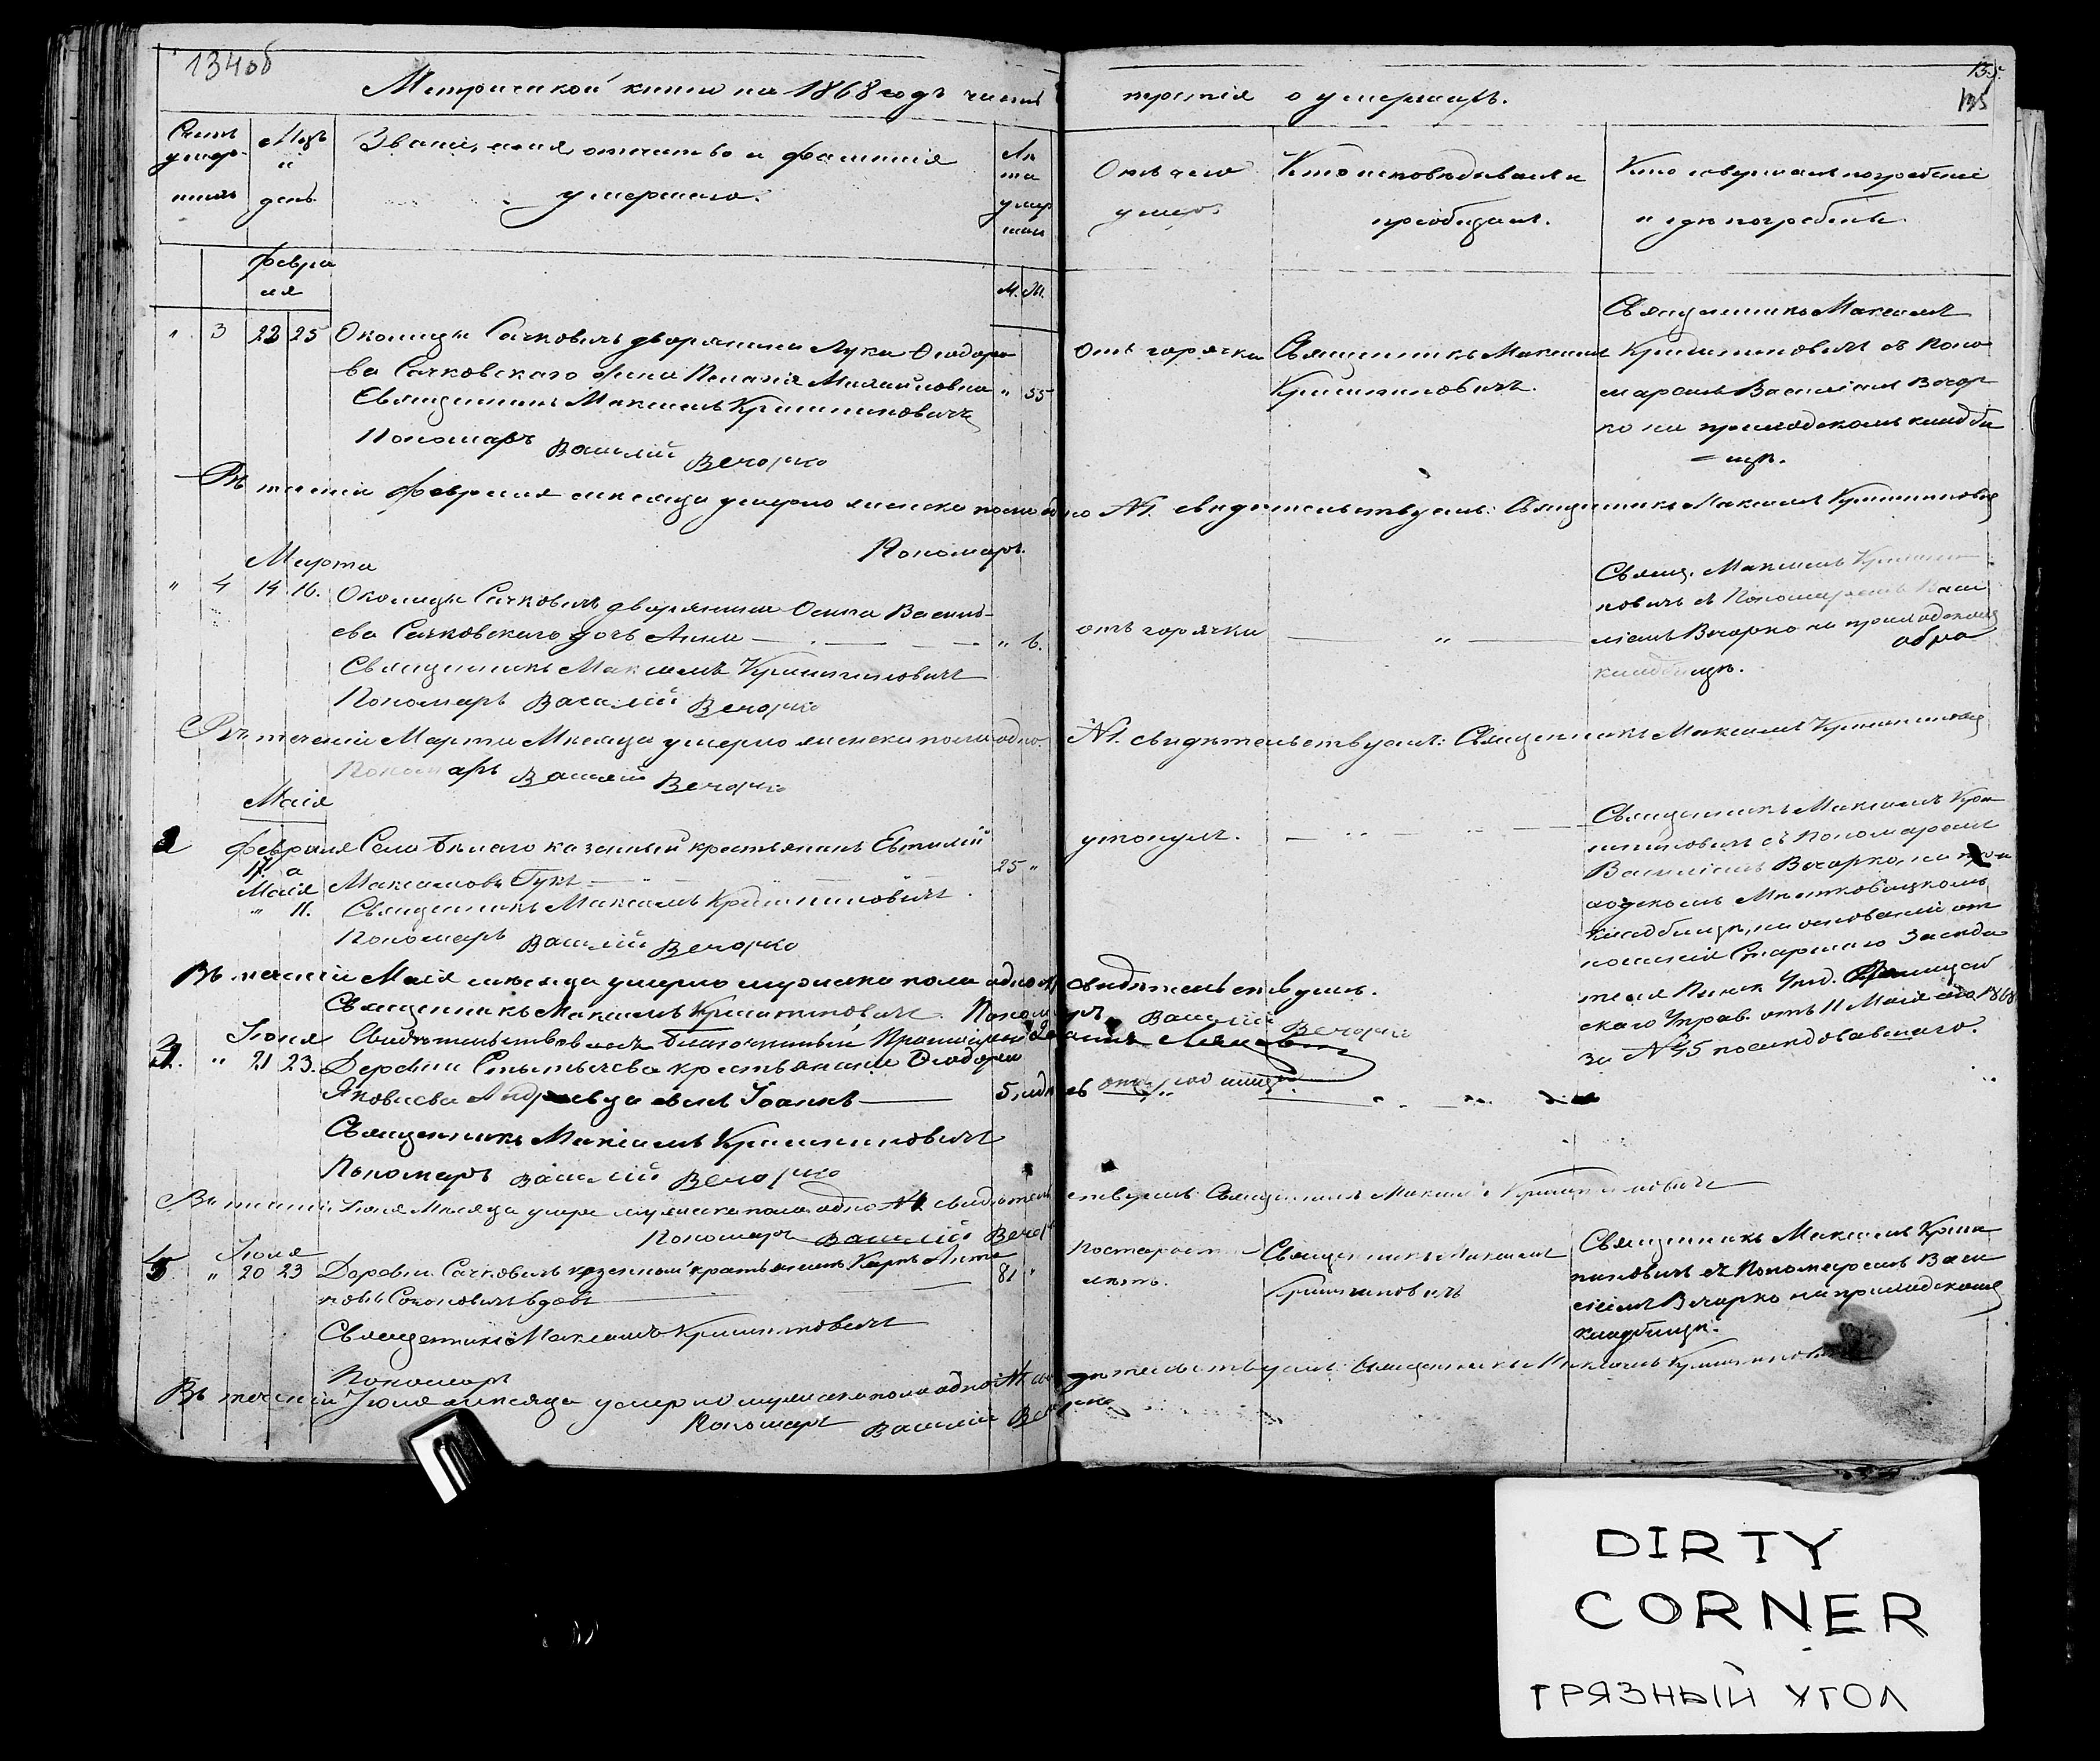 134об
135
Метрической книги на 1868 годъ часть третія о умершихъ.
Счетъ умершихъ
Мѣс. и день
Званіе, имя, отчество и фамилія умершаго.
Лѣта умершаго
Отъ чего умеръ
Кто исповѣдывалъ и пріобщалъ.
Кто совершалъ погребеніе и гдѣ погребены
Февраля
М. Ж.
" 3 22 25 Околицы Сачковичъ дворянина Луки Ѳеодоро-
ва Сачковскаго жена Пелагія Михайловна " 55
Священникъ Максимъ Криштиновичъ
Пономарь Василій Вечорко
Отъ горячки
Священникъ Максимъ
Криштиновичъ.
Священникъ Максимъ
Криштиновичъ съ Поно-
маремъ Василіемъ Вечор-
ко на приходскомъ кладби-
щѣ.
Въ теченіи февраля мѣсяца умерло женска пола одно №1. свидѣтельствуемъ: Священникъ Максимъ Криштиновичъ
Пономарь
Марта
" 4 14 16. Околицы Сачковичъ дворянина Осипа Василь-
ева Сачковскаго дочь Анна " 6.
Священникъ Максимъ Криштиновичъ
Пономарь Василій Вечорко
отъ горячки
"
Свящ. Максимъ Кришти-
новичъ съ Пономаремъ Васи-
ліемъ Вечорко на приходскомъ
кладбищѣ.
Въ теченіи Марта Мѣсяца умерло женска пола одно. №1. свидѣтельствуемъ: Священникъ Максимъ Криштиновичъ
Пономарь Василій Вечорко
Маія
2 Февраля Села Бѣлаго казенный крестьянинъ Евтихій
17 а
Маія Максимовъ Гукъ 25 "
" 11. Священникъ Максимъ Криштиновичъ.
Пономарь Василій Вечорко
утонулъ.
Священникъ Максимъ Кри-
штиновичъ съ Пономаремъ
Василіемъ Вечорко, на при-
ходскомъ
кладбищѣ, на основаніи от-
ношенія Старшаго Засѣда-
теля Пинск. Уѣзд. Полицей-
скаго Управ. отъ 11 Маія 1868
за №45 послѣдовавшаго.
Въ теченіи Маія мѣсяца умерло мужска пола одно №1 свидѣтельствуемъ.
Священникъ Максимъ Криштиновичъ Пономарь Василій Вечорко
Іюня Свидѣтельствовалъ благочинный
3. " 21 23. Деревни Стытычева крестьянина Ѳеодора
Яковлева сынъ Іоаннъ 5
Священникъ Максимъ Криштиновичъ
Пономарь Василій Вечорко
Въ теченіи Іюня Мѣсяца умерло мужска пола одно №1. свидѣтельствуемъ: Священникъ Максимъ Криштиновичъ
Пономарь Василій Вечорко
Іюля
" 20 23 Деревни Сачковичъ казенный крестьянинъ Карпъ Анто-
новъ вдовъ 81 "
Священникъ Максимъ Криштиновичъ
Пономарь
По старости
лѣтъ.
Священникъ Максимъ
Криштиновичъ
Священникъ Максимъ Кришти-
новичъ съ Пономаремъ Васи-
ліемъ Вечорко на приходскомъ
кладбищѣ.
Въ теченіи Іюля мѣсяца умерло мужска пола одно №1 свидѣтельствуемъ: Священникъ Максимъ Криштиновичъ
Пономарь Василій Вечорко
DIRTY
CORNER
ГРЯЗНЫЙ УГОЛ